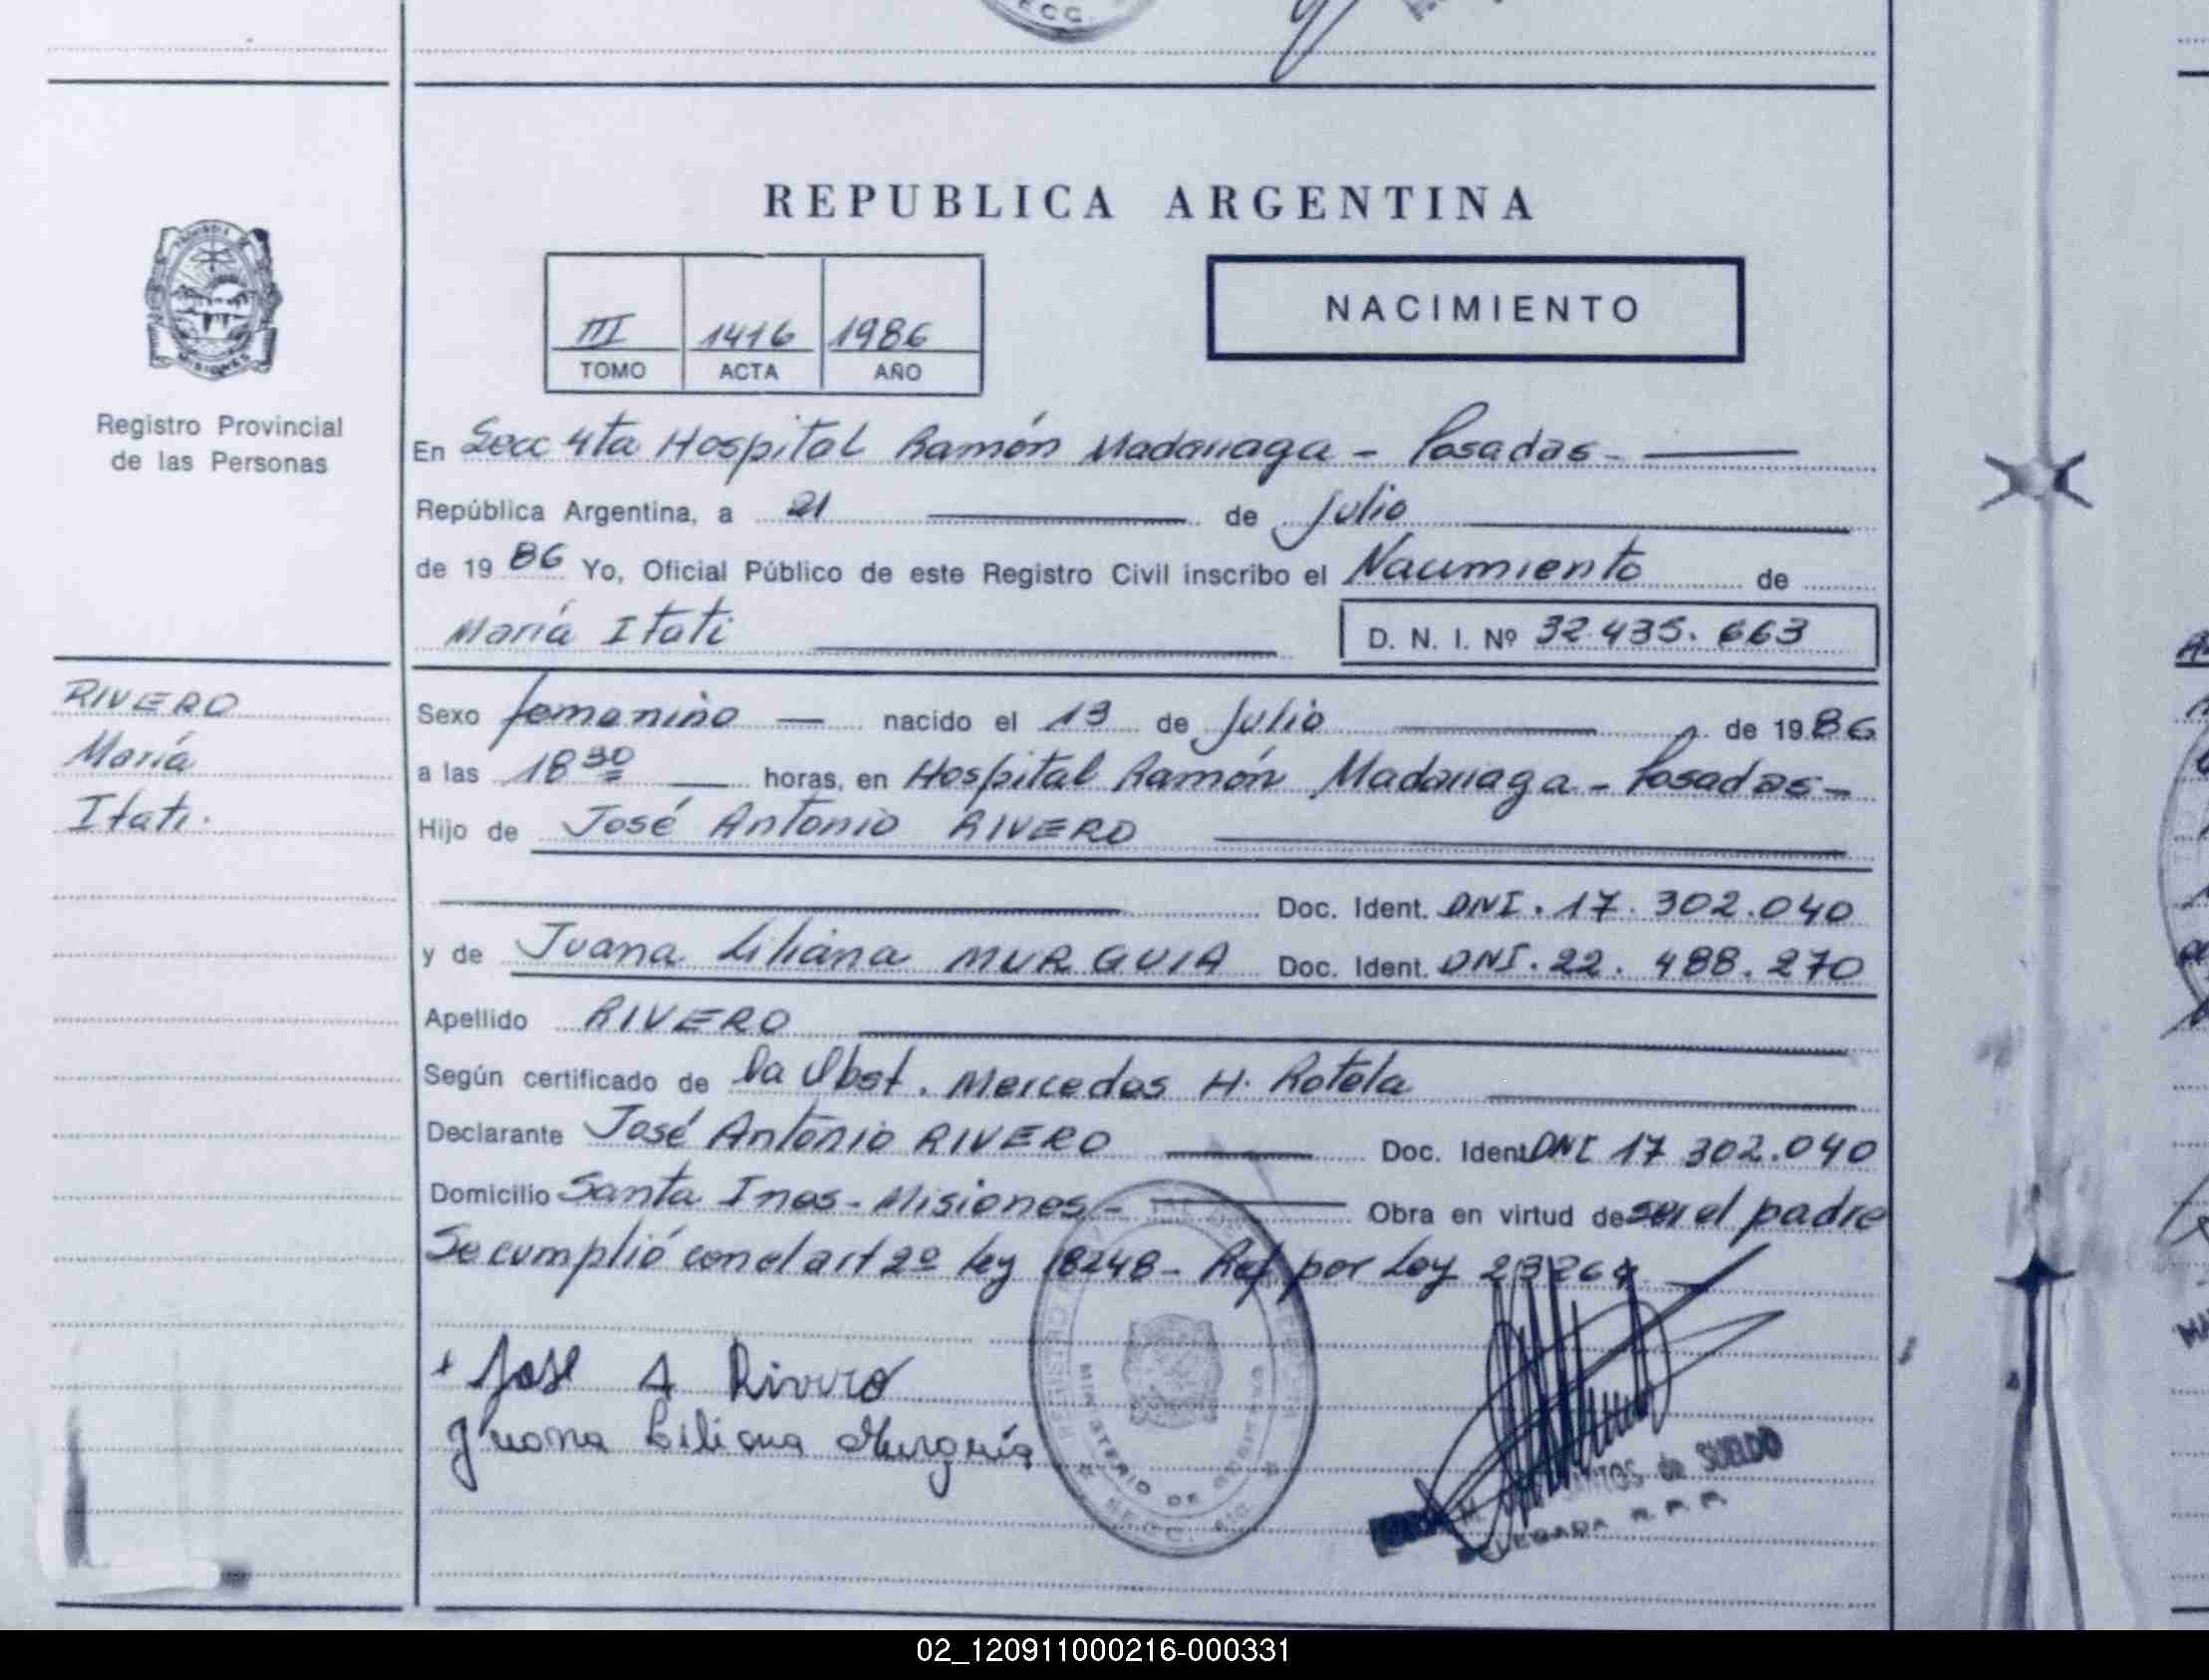 REPUBLICA ARGENTINA
III 1416 1986
TOMO ACTA AÑO
NACIMIENTO
Registro Provincial
de las Personas
En Secc 4ta Hospital Ramón Madariaga - Posadas -
República Argentina, a 21 de Julio
de 19 86 Yo, Oficial Público de este Registro Civil inscribo el Nacimiento de
María Itati
D. N. I. Nº 32.435.663
RIVERO
María
Itati.
Sexo femenino — nacido el 13 de Julio de 19 86
a las 18 30 horas, en Hospital Ramón Madariaga - Posadas -
Hijo de José Antonio RIVERO
Doc. Ident. DNI. 17.302.040
y de Juana Liliana MURGUIA Doc. Ident. DNI. 22.488.270
Apellido RIVERO
Según certificado de la Obst. Mercedes H. Rotela
Declarante José Antonio RIVERO Doc. Ident DNI 17 302.040
Domicilio Santa Ines - Misiones - Obra en virtud de ser el padre
Se cumplió con el art 2º ley 18248 - Ref por Ley 23264
+ José A Rivero
Juana Liliana Murguía
MINISTERIO DE GOBIERNO
SECC.
SANTOS de SUELDO
DELEGADA R.P.P.
02_120911000216-000331